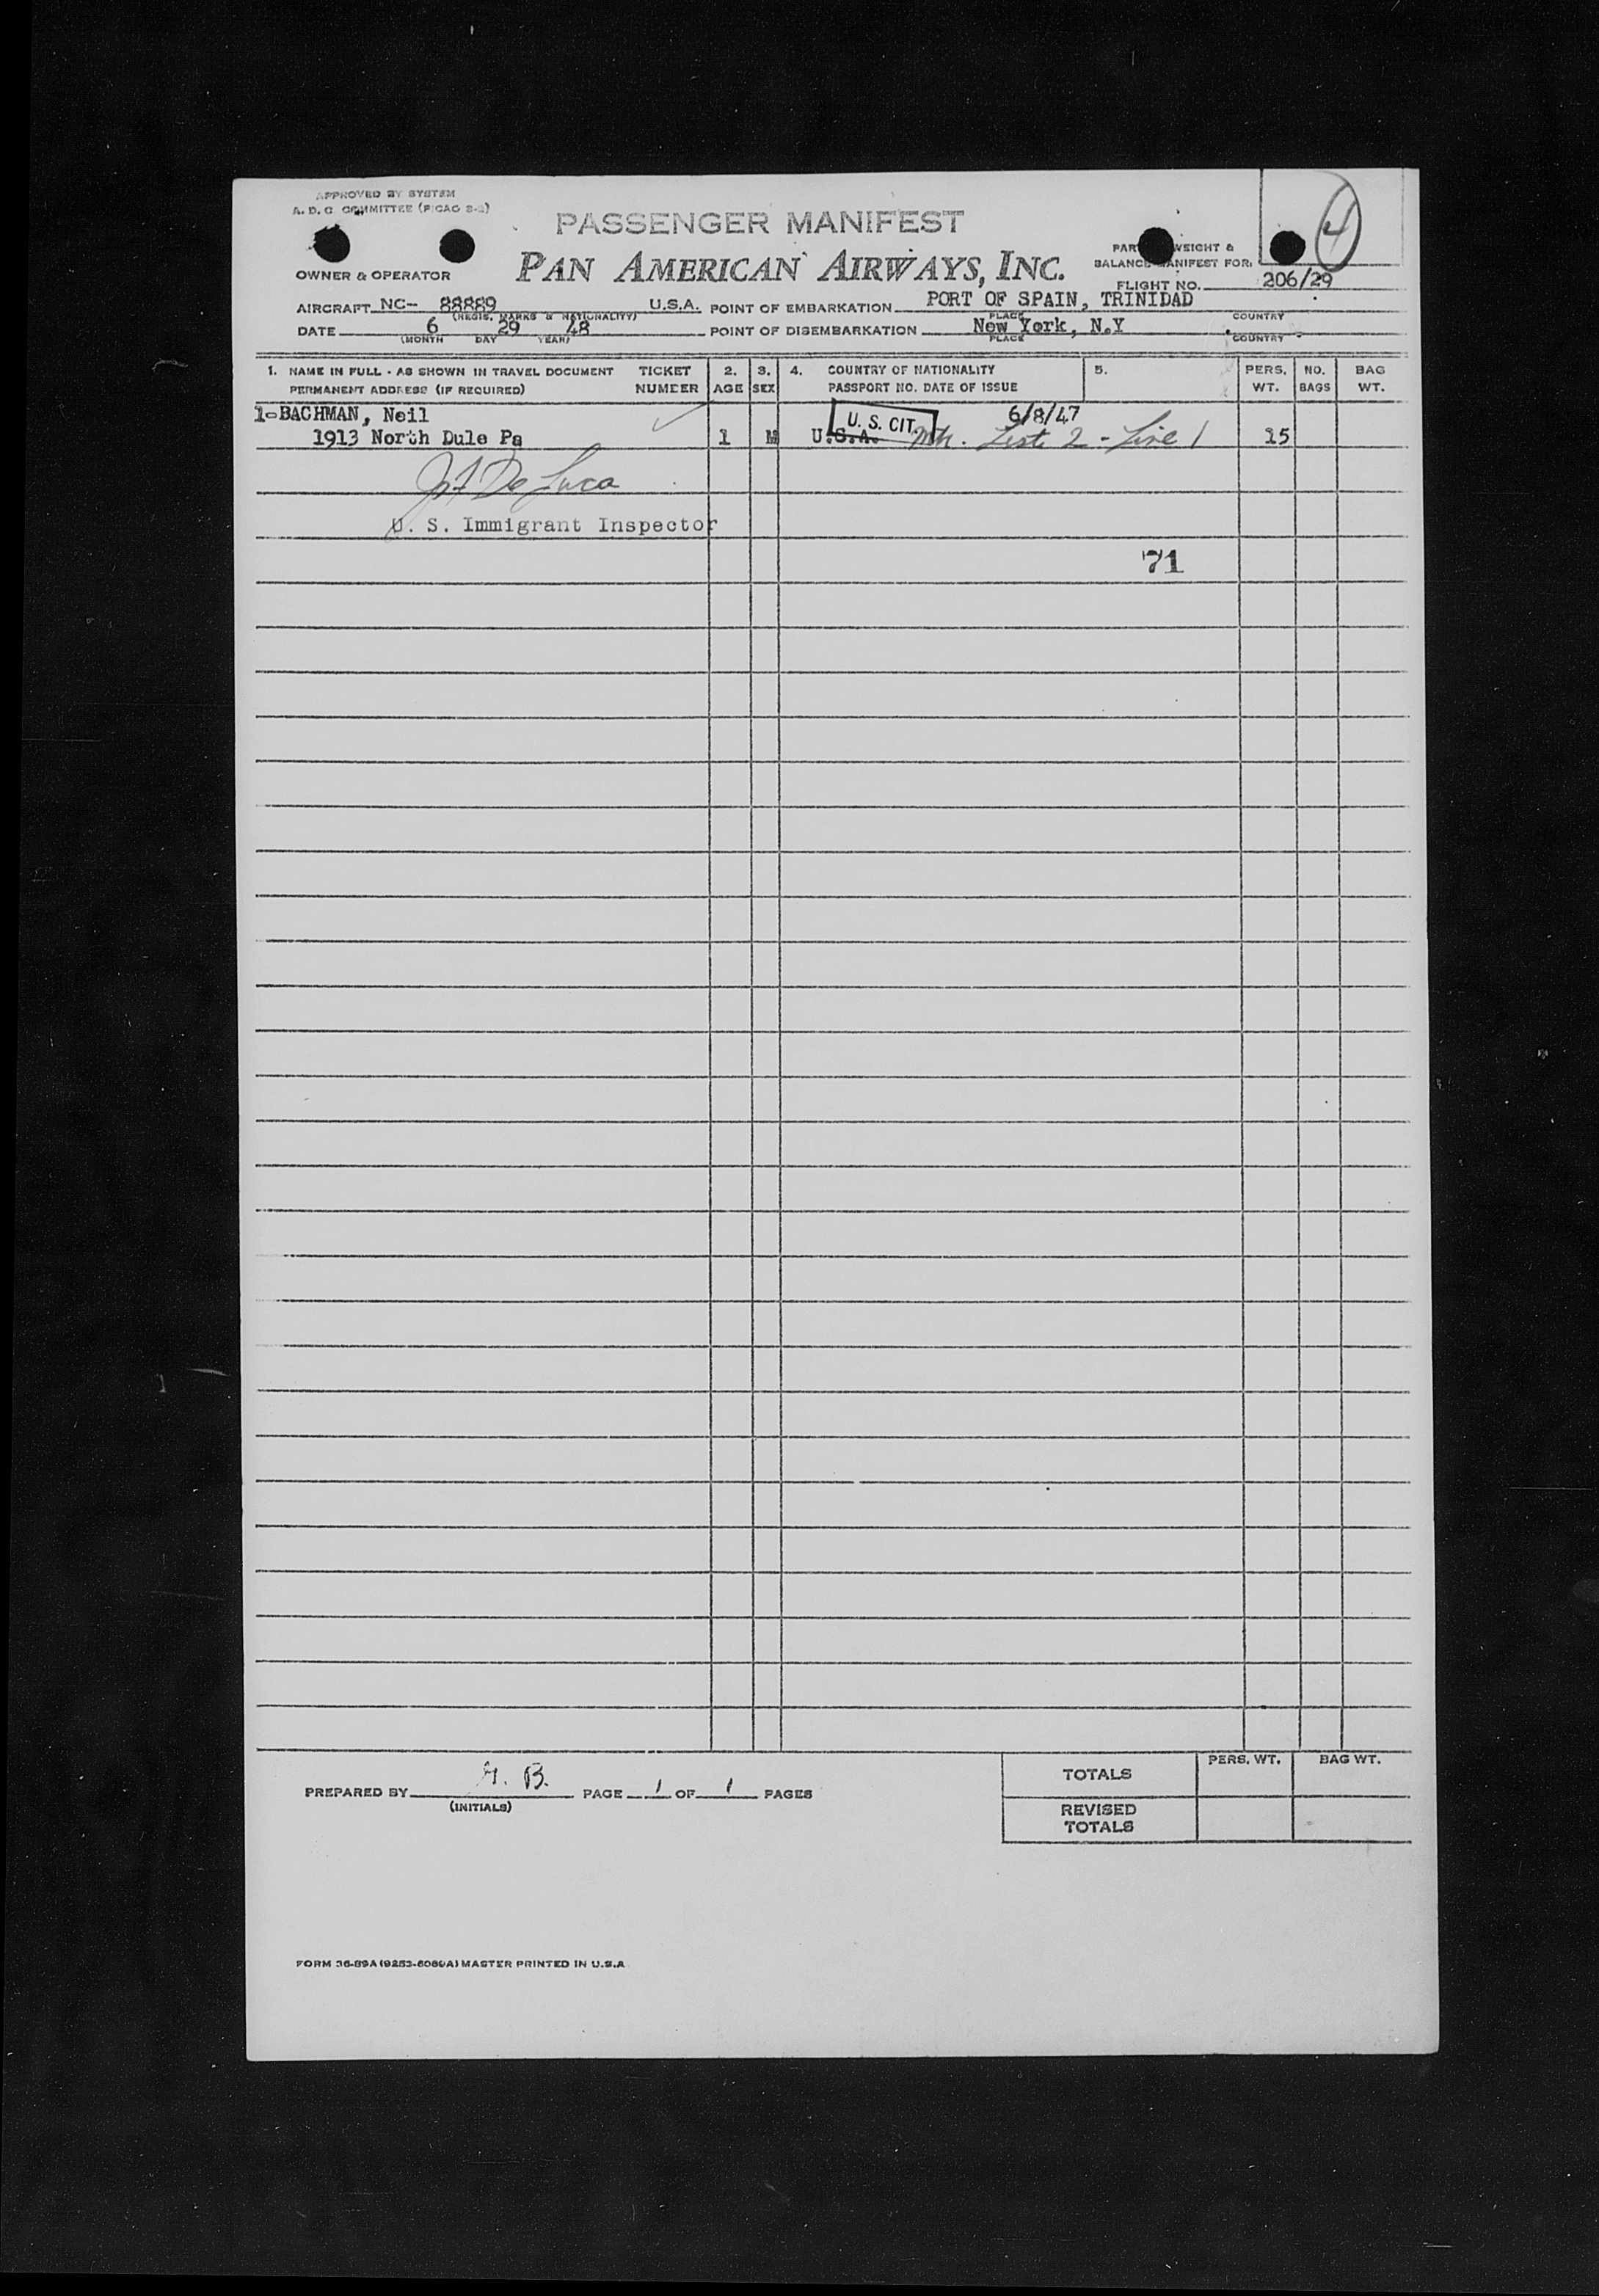 APPROVED BY SYSTEM
A. D. C COMMITTEE (PICAO S-2)
4
PASSENGER MANIFEST
PAN AMERICAN AIRWAYS, INC.
OWNER & OPERATOR
WEIGHT &
BALANCE MANIFEST FOR:
FLIGHT NO. 206/29
AIRCRAFT NC- 88889 U.S.A. POINT OF EMBARKATION PORT OF SPAIN, TRINIDAD
(REGIS. MARKS & NATIONALITY) PLACE COUNTRY
DATE 6 29 48 POINT OF DISEMBARKATION New York, N.Y
(MONTH DAY YEAR) PLACE COUNTRY
1. NAME IN FULL - AS SHOWN IN TRAVEL DOCUMENT TICKET 2. 3. 4. COUNTRY OF NATIONALITY 5. PERS. NO. BAG
PERMANENT ADDRESS (IF REQUIRED) NUMBER AGE SEX PASSPORT NO. DATE OF ISSUE WT. BAGS WT.
1-BACHMAN, Neil U. S. CIT. 6/8/47
1913 North Dule Pa 1 M U.S.A. List 2 - Line 1 15
De Luca
U. S. Immigrant Inspector
71
PERS. WT. BAG WT.
TOTALS
PREPARED BY B. PAGE 1 OF 1 PAGES
(INITIALS)
REVISED
TOTALS
FORM 36-89A (9253-6080A) MASTER PRINTED IN U.S.A